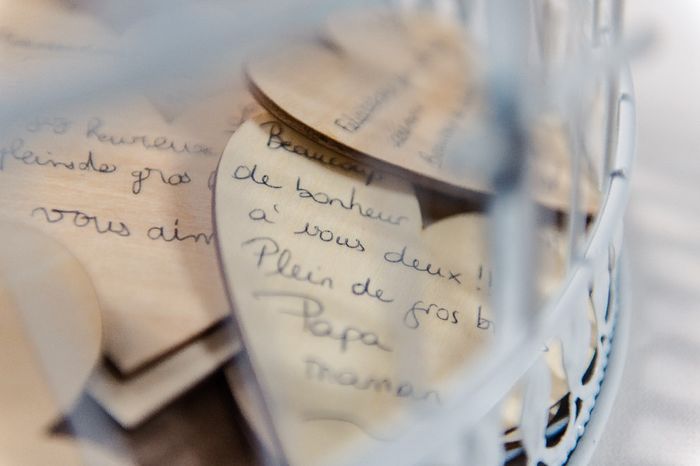 heureuse
pleins de gros
vous aim
Beaucoup
de bonheur
à vous deux !!
Plein de gros b
Papa
maman